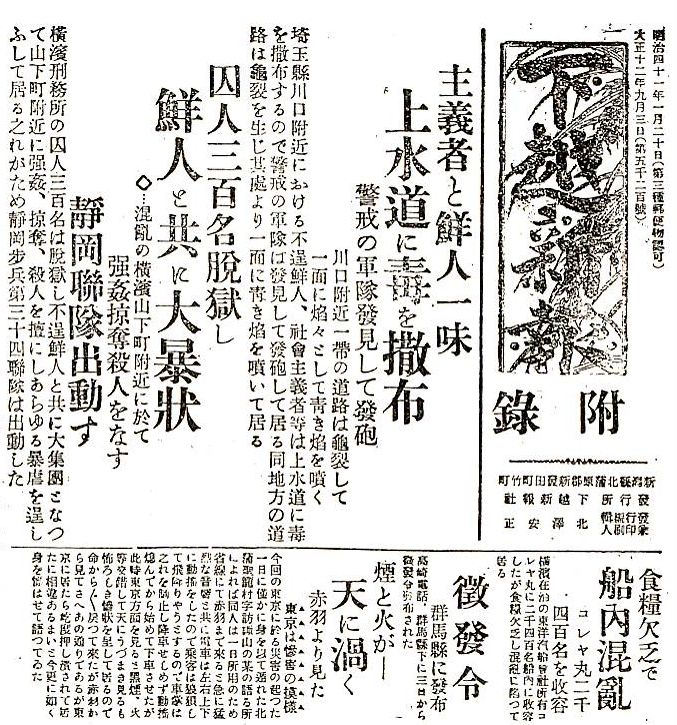 明治四十一年一月二十日(第三種郵便物認可)
大正十二年九月三日(第五千二百號)
下越新報
附錄
新潟縣北蒲原郡新發田町竹町
發行所 下越新報社
主義者と鮮人一味
上水道に毒を撒布
警戒の軍隊發見して發砲
川口附近一帶の道路は龜裂して
一面に焰々として靑き焰を噴く
埼玉縣川口附近における不逞鮮人、社會主義者等は上水道に毒
を撒布するので警戒の軍隊は發見して發砲して居る同地方の道
路は龜裂を生じ其處より一面に靑き焰を噴いて居る
囚人三百名脫獄し
鮮人と共に大暴狀
◇…混亂の橫濱山下町附近に於て
强姦掠奪殺人をなす
靜岡聯隊出動す
橫濱刑務所の囚人三百名は脫獄し不逞鮮人と共に大集團となつ
て山下町附近に强姦、掠奪、殺人を擅にしあらゆる暴虐を逞し
ふして居る之れがため靜岡步兵第三十四聯隊は出動した
食糧欠乏で
船內混亂
コレヤ丸二千
四百名を收容
橫濱在泊の東洋汽船會社所有コ
レヤ丸に二千四百名船內に收容
したが食糧欠乏し混亂に陷つて
居る
徵發令
群馬縣に發布
高崎電話、群馬縣下に三日から
徵發令が布された
煙と火が
天に渦く
赤羽より見た
東京は慘害の模樣
今回の東京に於る災害の起つた
一日に僅かに身を以て遁れた北
蒲聖籠村字訪
によれば同人は一日所用のため
省線にて赤羽まで來ると急に猛
烈な音響と共に電車は左右上下
に動搖をしたので乘客は狼狽し
て飛降りやうとするので車掌は
之れを制止し降車せしめず動搖
熄んでから始めて下車させたが
此時東京方面を見ると黑煙、火
等交錯して天にうづまき見るも
怖ろしき慘狀を呈して居るので
命から〲戾つて來たが赤羽か
ら見てさへあの通りであるが東
京に居たら乾度押し潰されて居
たに相違あるまいと今更に如く
身を慄はせて語つてゐた